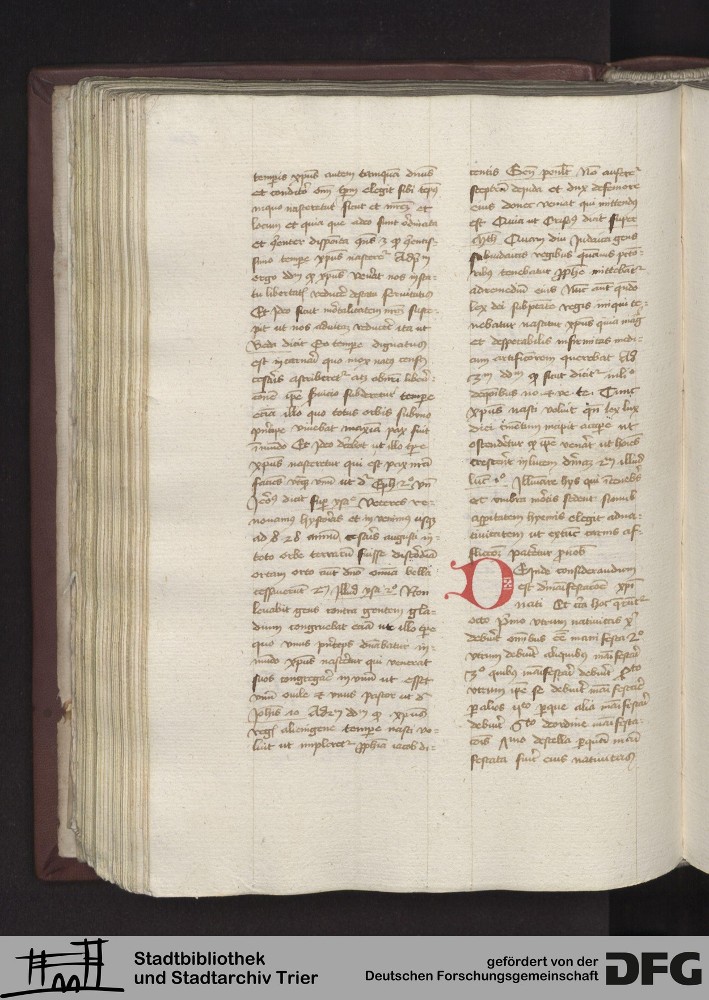 temporis xpus autem tamquam dnus
et conditor omnium tpm elegit sibi tepus
in quo nasceretur sicut et matrem et
locum et quia que a deo sunt ordinata
et conuenienter disposita
simo tempore xpus nasceretur Ad pm
ergo ddm qp xpus venerat nos in sta-
tu libertatis reducere de statu seruitutis
Et ideo sicut mortalitatem nram susce-
pit ut nos ad vitam reduceret ita ut
Beda dicit Eo tempe dignatus
est incarnari quo mox natus censu
cesaris ascriberetur atque ob nostri libera-
cionem ipe seruicio subderetur tempe
eciam illo quo totus orbis sub vno
principe viuebat maxia pax fuit
in mundo Et ideo decebat ut illo tpe
xpus nasceretur qui est pax nra
faciens vtraque vnum ut dr Eph 2º vn
Jero9 dicit super ysa Veteres re-
uoluamus hystorias et inueniemus usque
ad 28 annum cesaris augusti in
toto orbe terrarum fuisse discordiam
orto aut dno omnia bella
cessauerunt illud ysa 2º Non
leuabit gens contra gentem gla-
dium congruebat eciam ut illo tpe
quo vnus princeps dnabatur in
mundo xpus nasceretur qui venerat
suos congregare in vnum ut esset
vnum ouile et vnus pastor ut dr
Johis 10 Ad 2m ddm qp xpus
regis alienigene tempe nasci vo-
luit ut impleretur pphia iacob di-
centis Gen penult Non auferetur
sceptrum de iuda et dux de femore
eius donec veniat qui mittendus
est Quia ut Crisos dicit super
Math Quam diu Judaica gens
sub iudaicis regibus quamuis pecca-
toribus tenebatur pphe mittebantur
ad remedium eius Nunc aut quando
lex dei sub potestate regis iniqui te-
nebatur nascitur xpus quia mag
et desperabilis infirmitas medi-
cum artificiorem querebat Ad
3m ddm qp sicut dicitur in li de
questionibus no et ve te Tunc
xpus nasci voluit quando lux
diei crementum incipit accipe ut
ostenderetur qp ipe venerat ut homines
crescerent in lucem diuinam illud
luc 1º Illuminare hys qui in tenebris
et vmbra mortis sedent similiter
asperitatem hyemis elegit natiui-
tatis ut extunc carnis af-
flictionem pateretur pro nobis
Deinde considerandum
est de manifestacione xpi
nati Et circa hoc querutur
octo Primo vtrum natiuitas xi
debuit omnibus esse manifesta 2º
vtrum debuit aliquibus manifestari
3º quibus manifestari debuit 4to
vtrum ipe se debuit manifestare
per alios 5to per que alia manifestari
debuit 6to de ordine manifesta-
cionis 7mo de stella per quam mani
festata fuit eius natiuitas
Stadtbibliothek
und Stadtarchiv Trier
gefördert von der
Deutschen Forschungsgemeinschaft
DFG